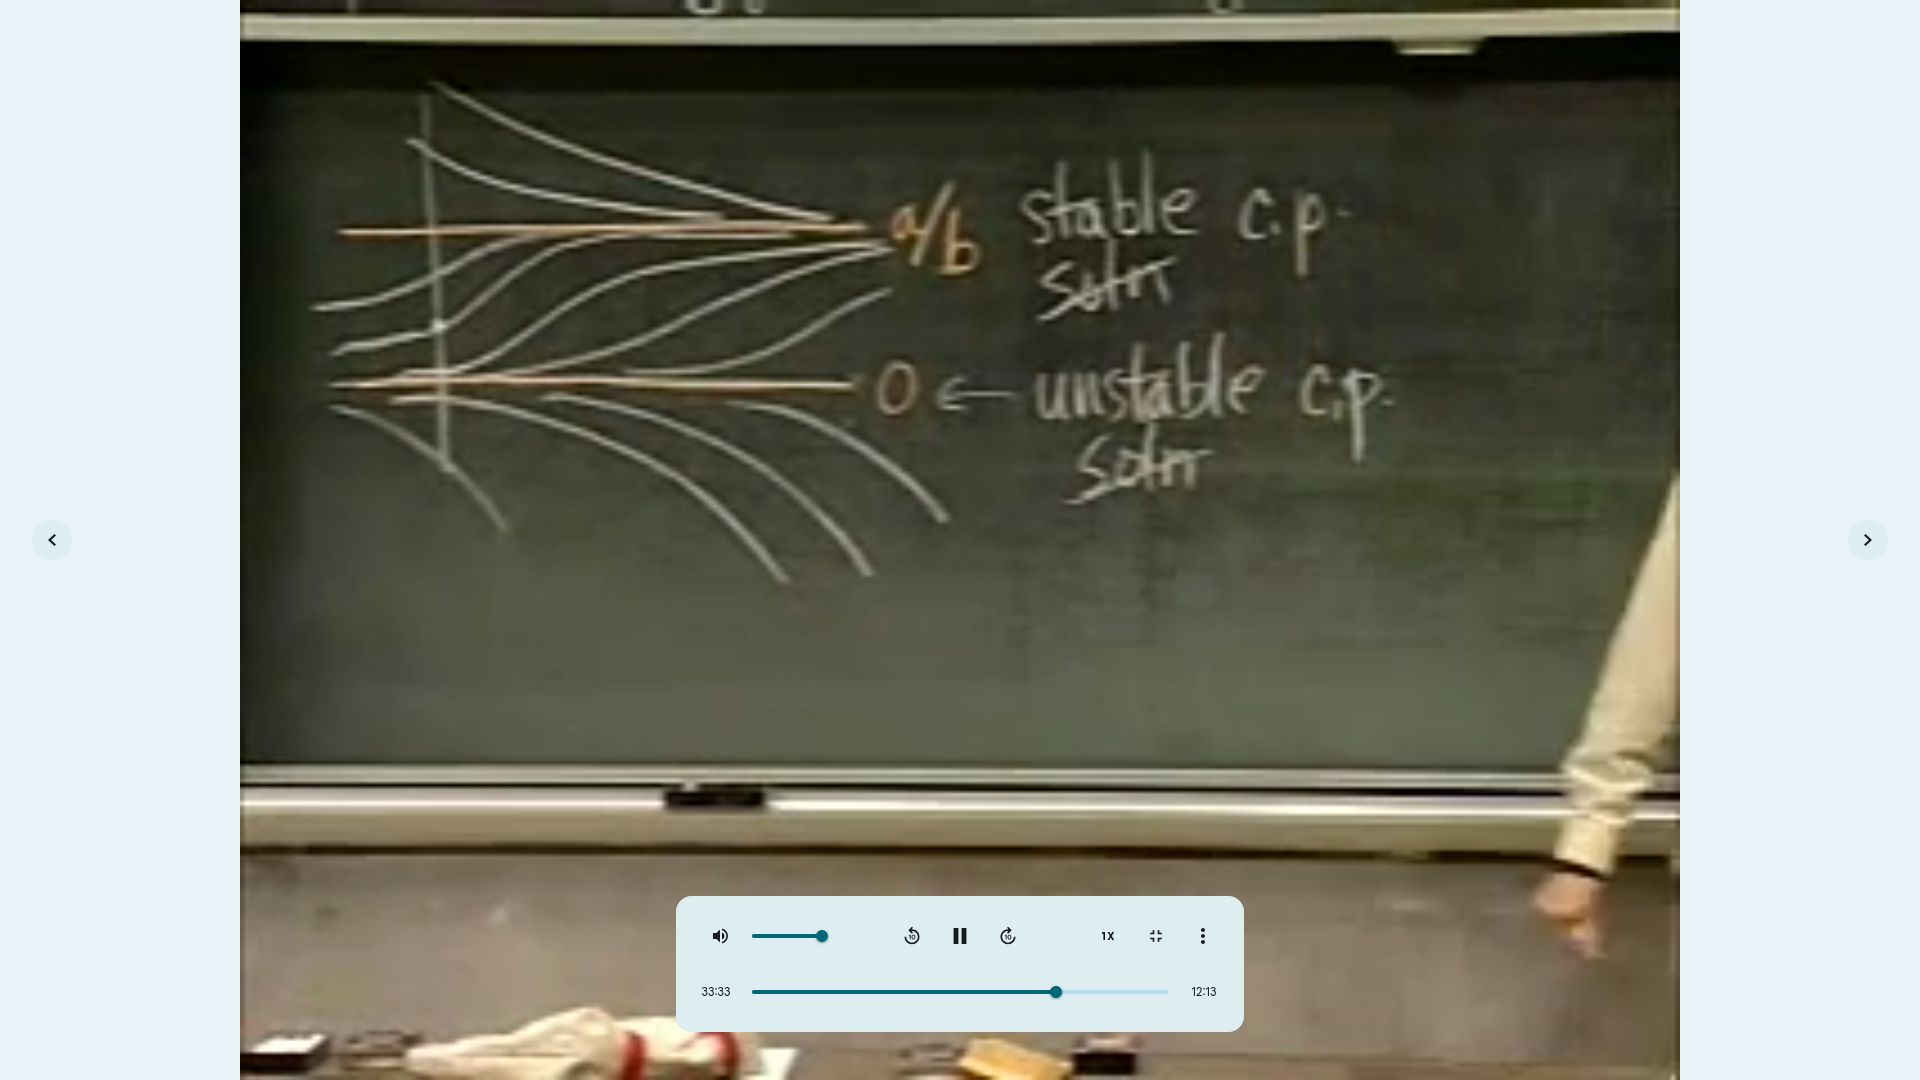 a/b stable c.p.
soln
0 ← unstable c.p.
soln
10
10
1X
33:33
12:13